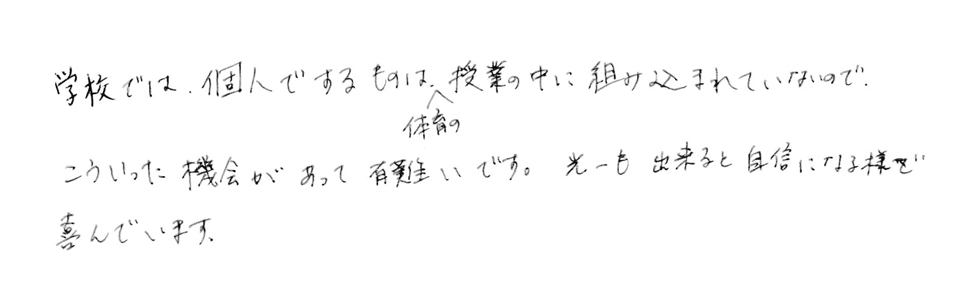 学校では、個人でするものは、体育の授業の中に組み込まれていないので、
こういった機会があって有難いです。光一も出来ると自信になる様で
喜んでいます。